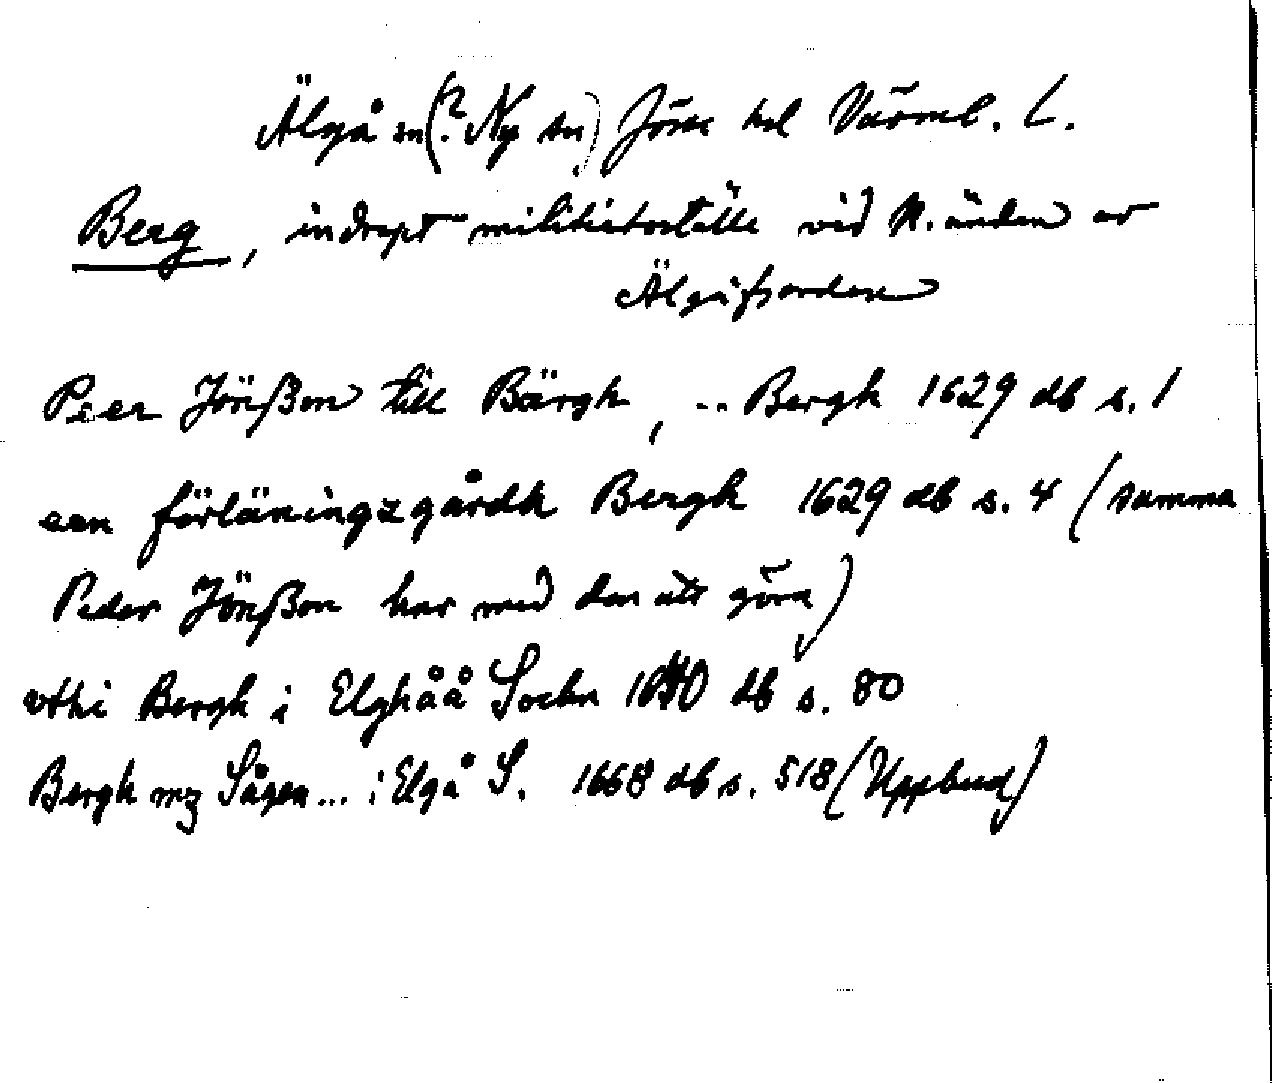 Älgå sn (? Ny sn) Jösse hd Värml. L.
Berg, indraget militieboställe vid N. änden av
Älgåfjorden
Peer Jönßon till Bärgh, .. Bergh 1629 db s. 1
een förläningzgårdh Bergh 1629 db s. 4 (samma
Peder Jönßon har med den att göra)
vthi Bergh i Elghåå Sochn 1640 db s. 80
Bergh mz Sågen... i Elgå S. 1668 db s. 518 (Uppbud)